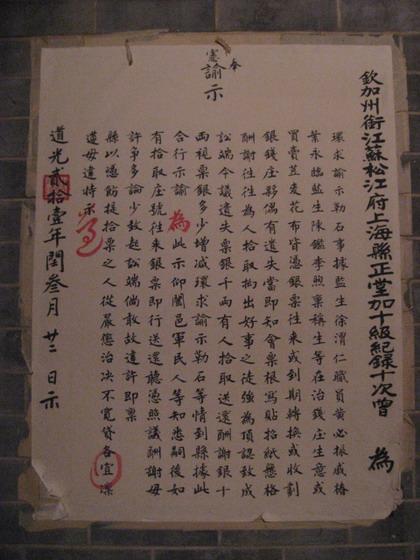 奉
憲諭示
欽加州銜江蘇松江府上海縣正堂加十級紀錄十次曾 為
環求諭示勒石事據監生徐渭仁職員黃必振戚椿
葉永臨監生陳鑑李照稟稱生等在治錢庄生意或
買賣荳麥花布皆憑銀票往來或到期轉換或收劃
銀錢庄夥偶有遺失當即知會票根寫貼招紙懸格
酬謝往往為人拾取掯出好事之徒強為頂認致成
訟端今議遺失票銀千兩有人拾取送還酬謝銀十
兩視票銀多少增減環求諭示勒石等情到縣據此
合行示諭為此示仰闔邑軍民人等知悉嗣後如
有拾取庄號往來銀票即行送還聽憑照議酬謝毋
許爭多論少致起訟端倘敢故違許即稟
縣以憑飭提拾票之人從嚴懲治決不寬貸各宜凜
遵毋違特示
道光貳拾壹年閏叁月廿二日示